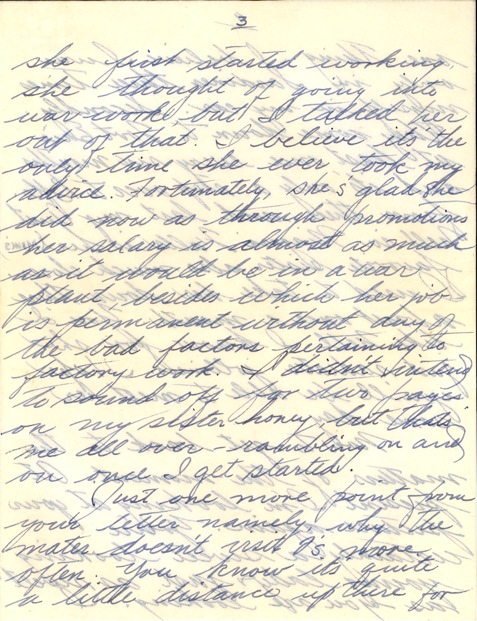 3
she first started working
she thought of going into
war work, but I talked her
out of that. I believe it's the
only time she ever took my
advice. Fortunately, she's glad she
did now as through promotions
her salary is almost as much
as it would be in a war
plant, besides which her job
is permanent without any of
the bad factors pertaining to
factory work. I didn't intend
to sound off for two pages
on my sister honey, but that's
me all over - rambling on and
on once I get started.
Just one more point from
your letter namely, why the
mater doesn't visit more
often. You know it's quite
a little distance up there for